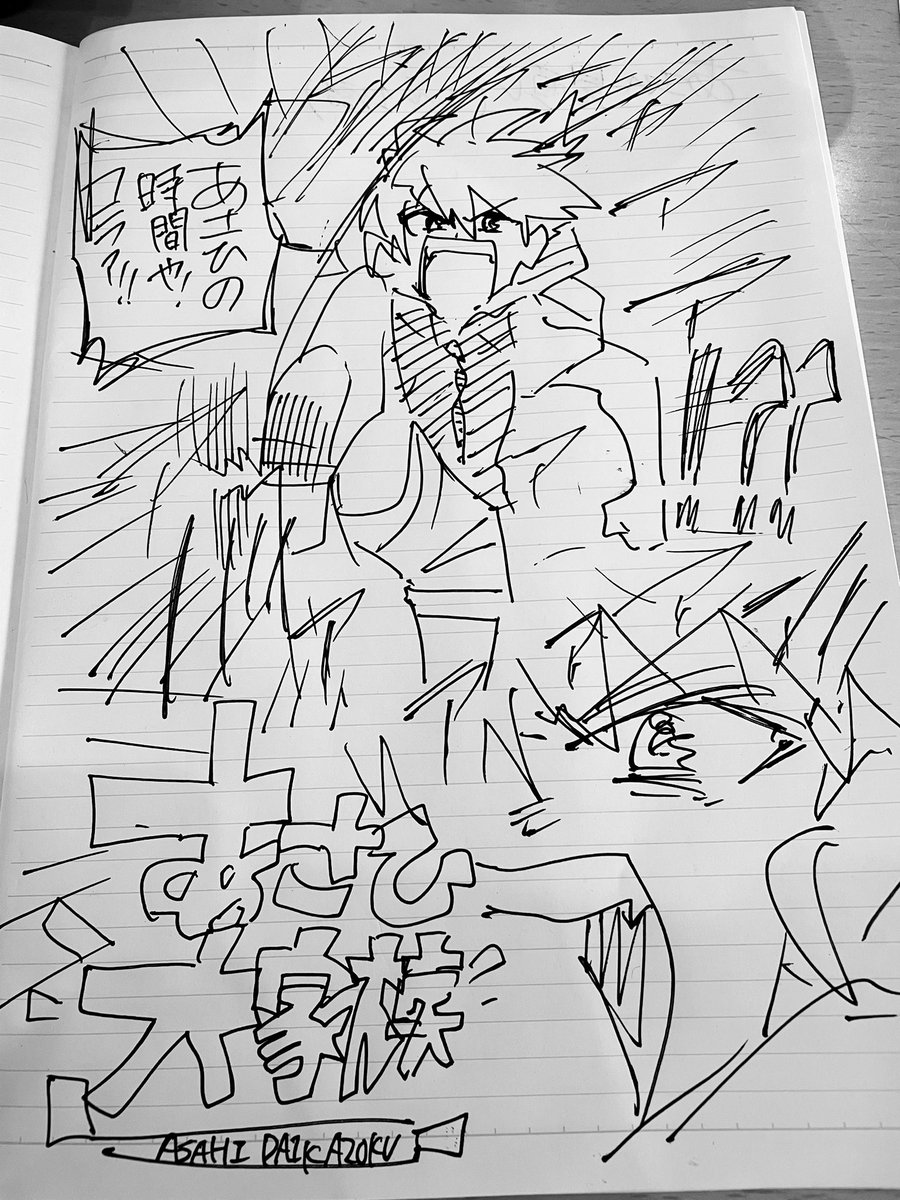 あさひの
時間や!
コラァ!!!
あさひ
大家族
ASAHI DAIKAZOKU